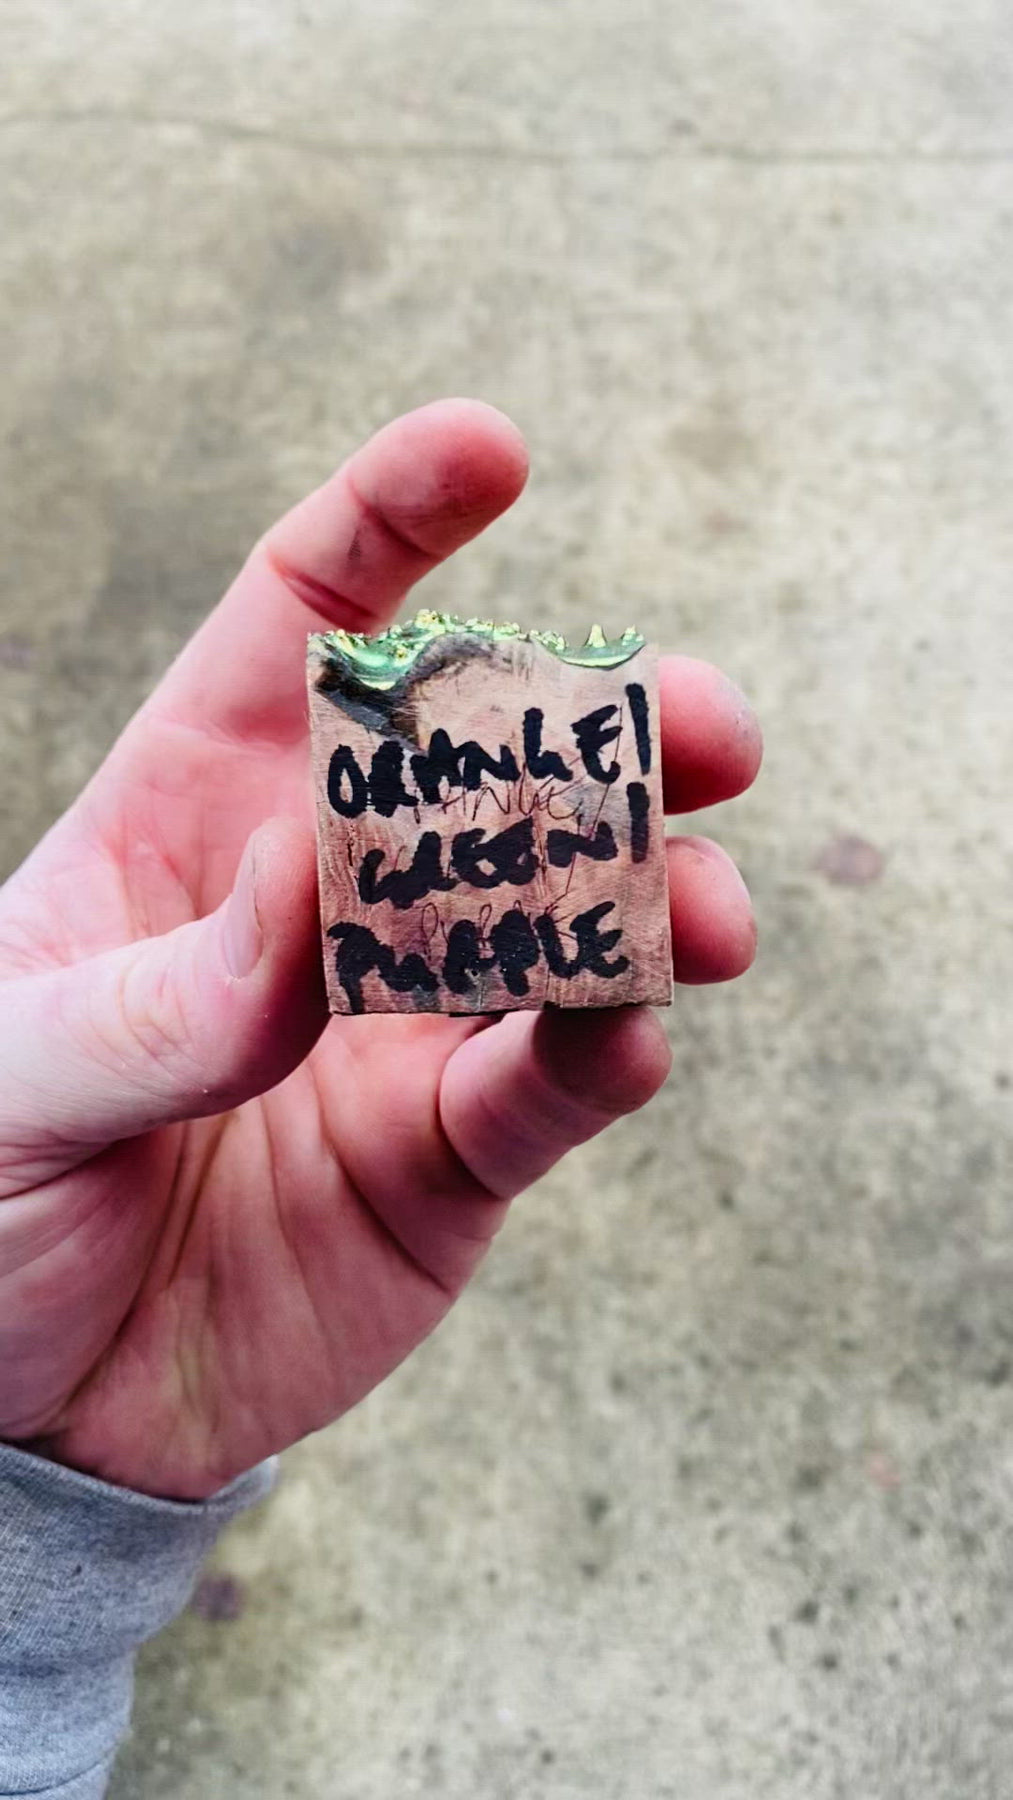 ORANGE/
GREEN/
PURPLE